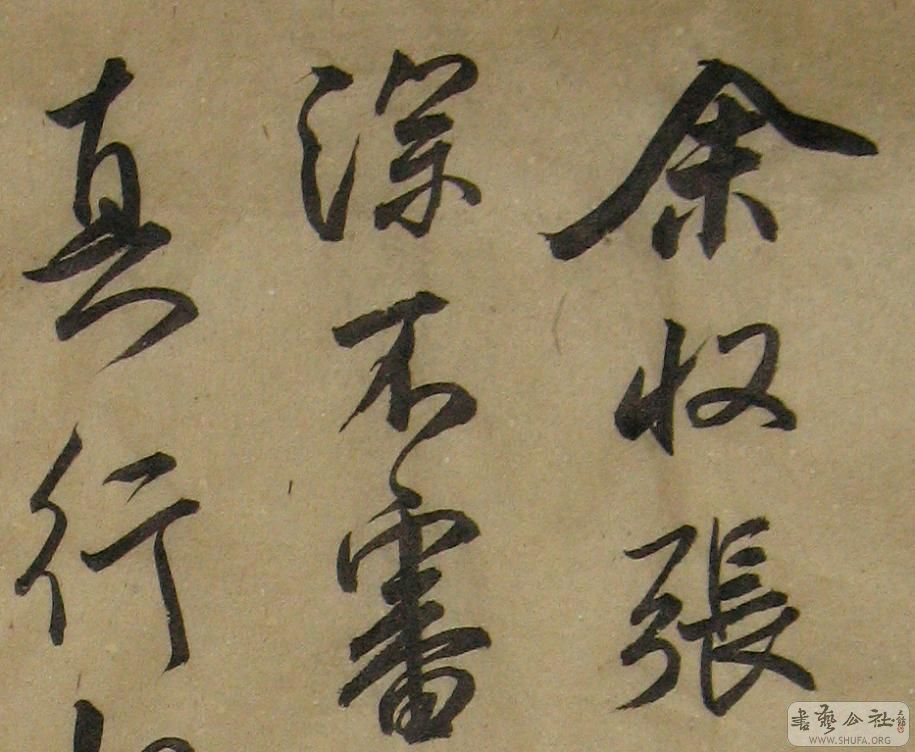 余收張
深不審
真行
書藝公社
WWW.SHUFA.ORG